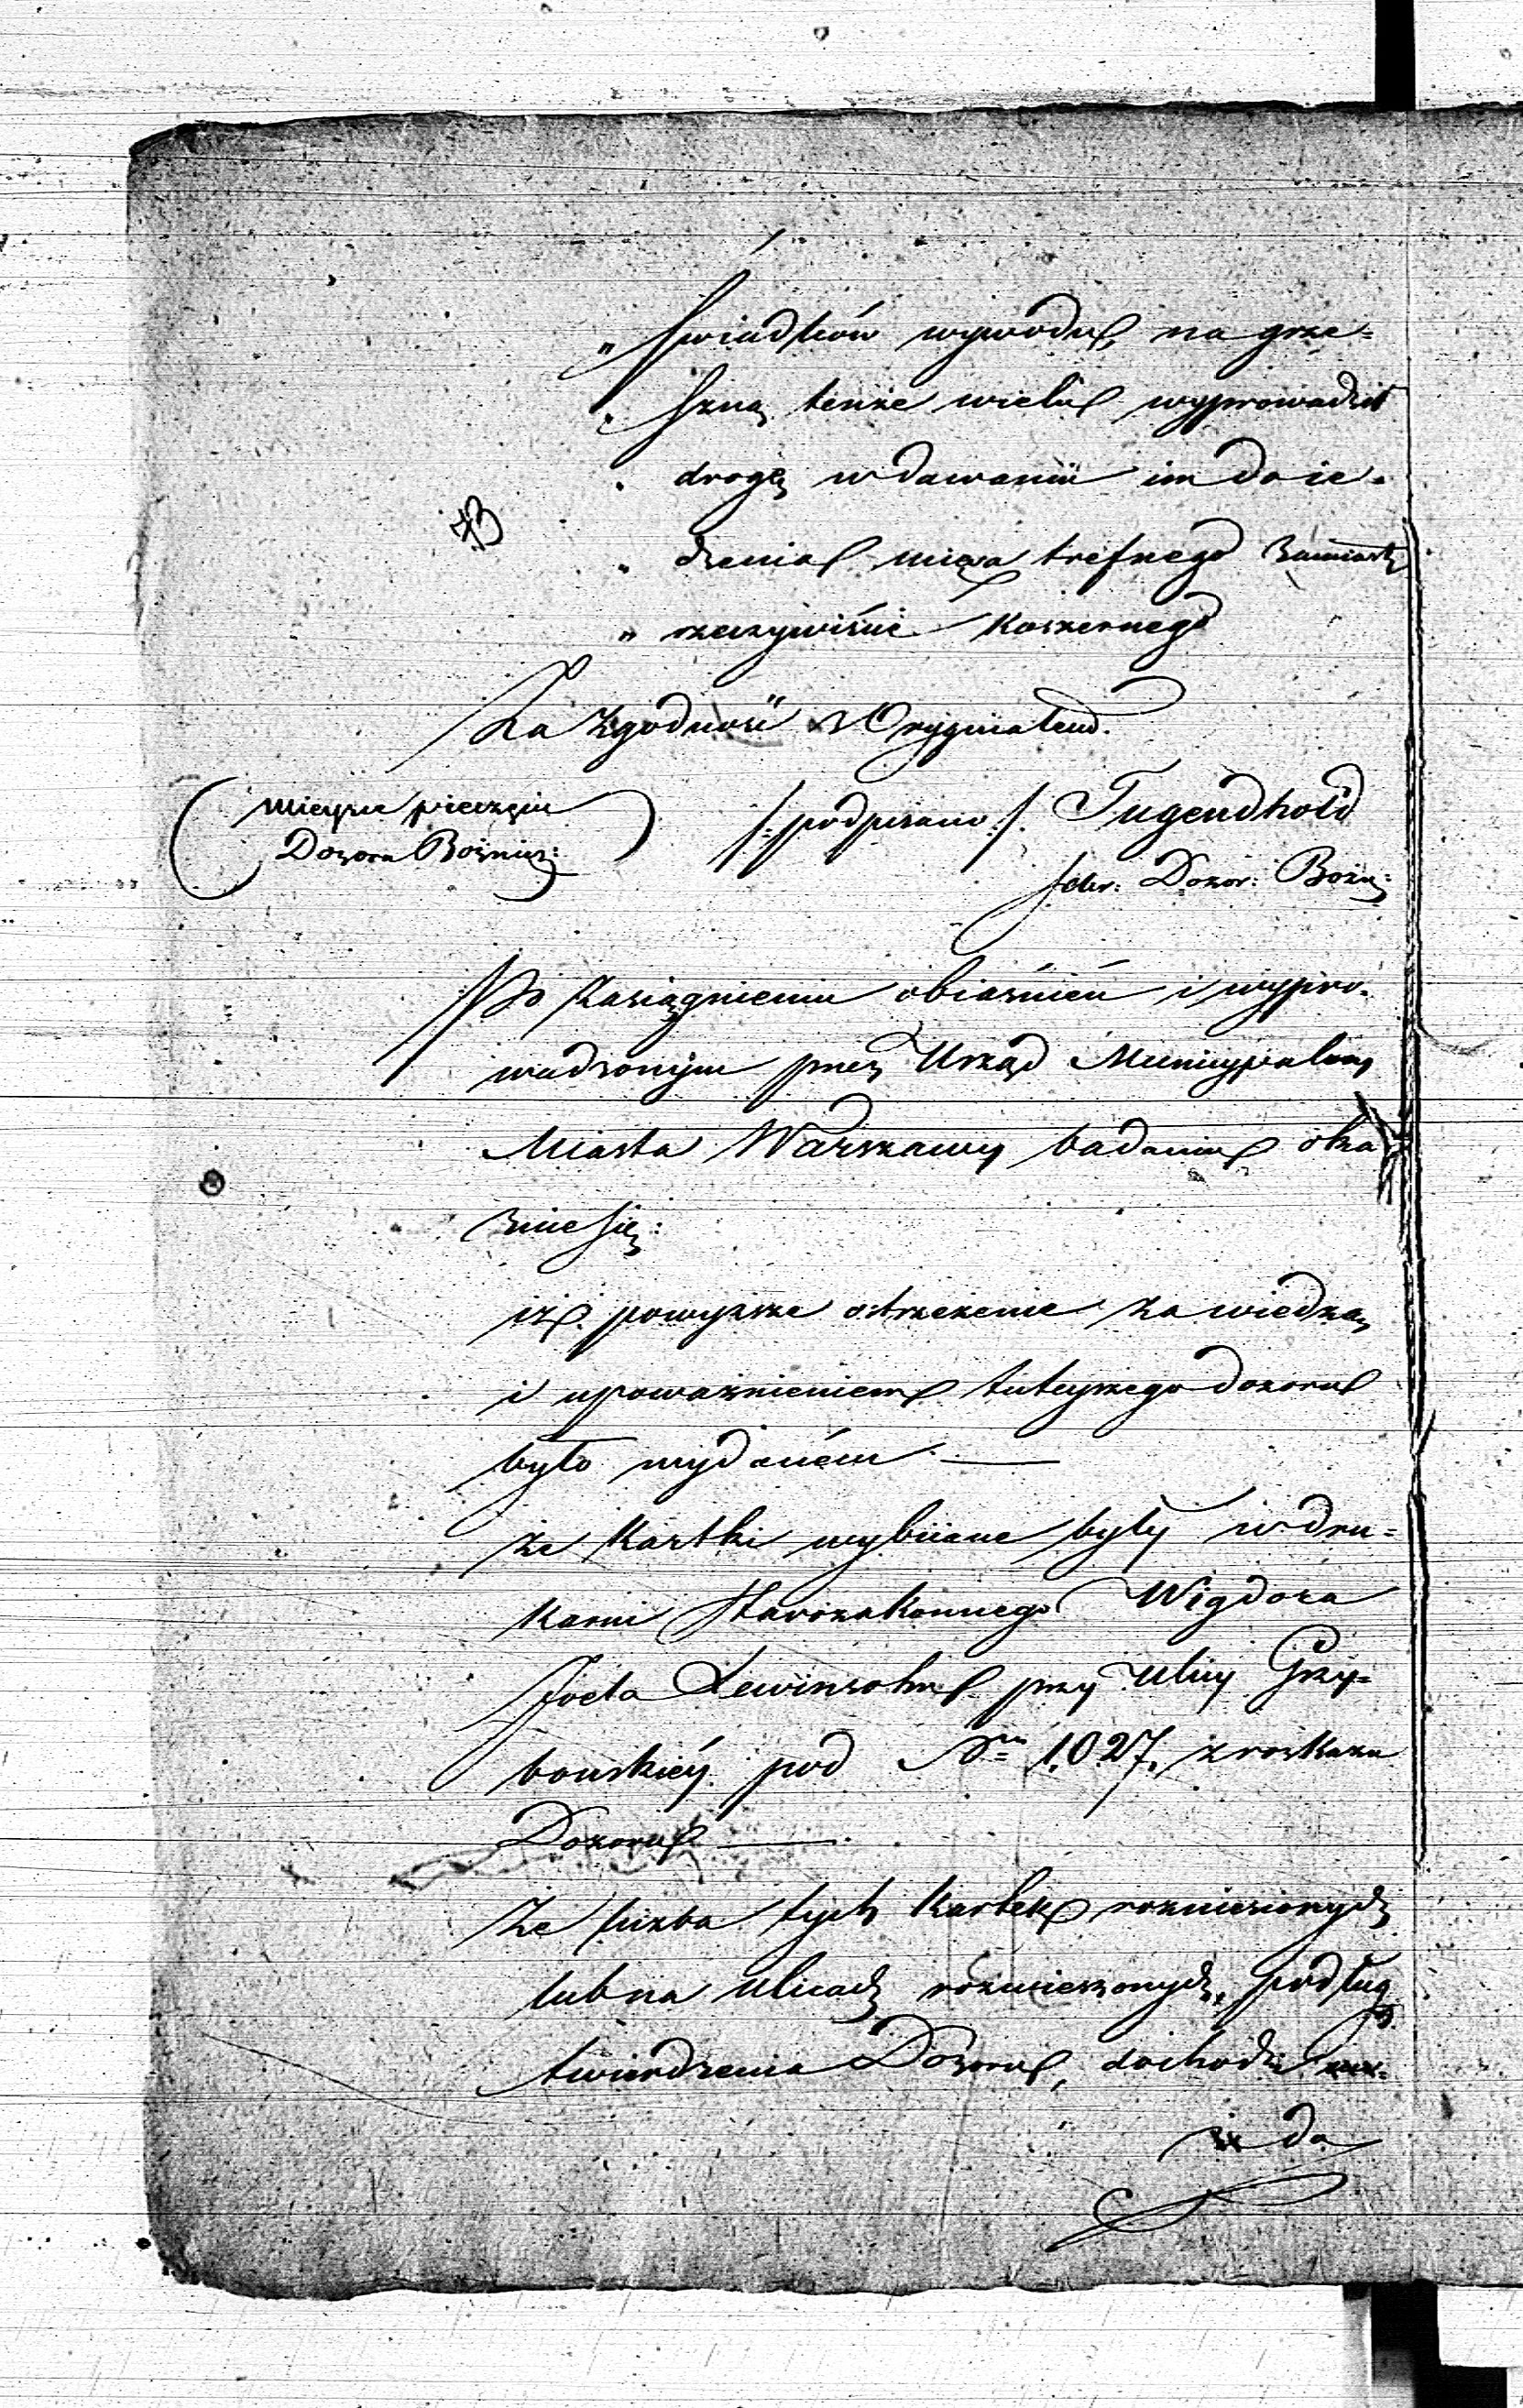 „ świadków wywodu, na grze=
„ szną tenże wielu wyprowadził
„ drogę w dawaniu im do ie=
73
„ dzenia mięsa trefnego zamiast
„ rzeczywiście koszernego
Za zgodność z Oryginałem.
(mieysce pieczęcie
Dozoru Bożnicz:)
/:podpisano:/ Tugendhold
Sekr: Dozor: Bożn:
Po zasiągnieniu obiaśnień i wypro=
wadzonym przez Urząd Municypalny
Miasta Warszawy badaniu oka
żuie się:
iż powyższe ostrzeżenie za wiedzą
i upoważnieniem tuteyszego dozoru
było wydaném —
że kartki wybiiane były w dru=
karni Starozakonnego Wigdora
Joela Lewinsohn przy ulicy Grzy=
bowskiéy pod Nrm 1027. z roskazu
Dozoru —
że liczba tych kartek rozniesionych
lub na ulicach rozwieszonych, podług
twierdzenia Dozoru, dochodzi
do